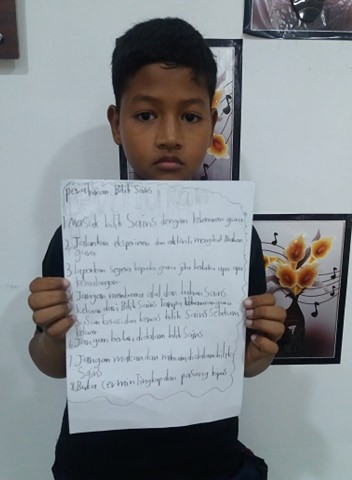 peraturan Bilik Sains
1. masuk bilik Sains dengan kebenaran guru
2. Jalankan eksperimen dan aktiviti mengikut arahan
guru
3. Laporkan segera kepada guru jika berlaku apa-apa
4. Jangan membawa alat dan bahan Sains
keluar dari Bilik Sains tanpa kebenaran guru
5. dan kemas bilik Sains Sebelum
keluar
6. Jangan berlari di dalam bilik Sains
7. Jangan makan dan minum di dalam bilik
Sains
8. Buka cermin tingkap dan pasang kipas